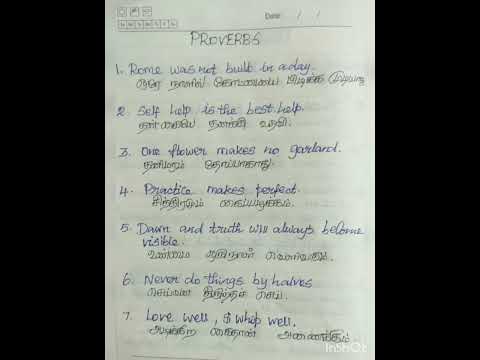 Date: / /
PROVERBS
1. Rome was not built in a day.
ஒரே நாளில் கோட்டையை பிடிக்க முடியாது
2. Self help is the best help.
தன் கையே தனக்கு உதவி.
3. One flower makes no garland.
தனிமரம் தோப்பாகாது.
4. Practice makes perfect.
சித்திரமும் கைப்பழக்கம்.
5. Dawn and truth will always become
visible.
உண்மை ஒருநாள் வெளிப்படும்.
6. Never do things by halves
செய்வன திருந்தச் செய்.
7. Love well, whip well.
அடிக்கிற கைதான் அணைக்கும்
InShOt